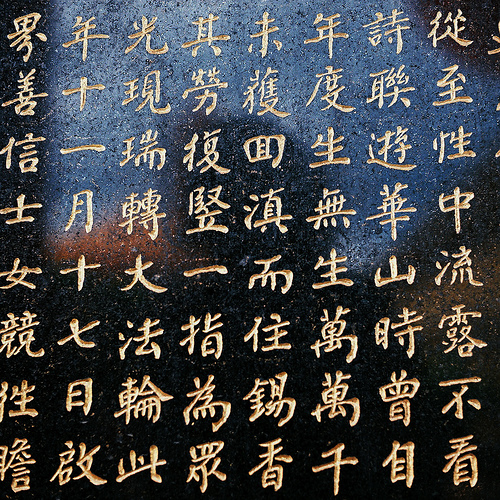 從至性中流露不看
詩聯遊華山時曾自
年度生無生萬萬千
未獲囬滇而住錫香
其勞復竪一指為眾
光現瑞轉大法輪此
年十一月十七日啟
界善信士女競徃瞻